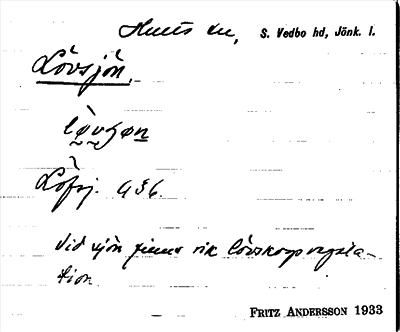 S. Vedbo hd, Jönk. l.
Lövsjön.
Löfsj. G 36.
Vid sjön finns rik lövskogsvegeta-
tion.
FRITZ ANDERSSON 1933